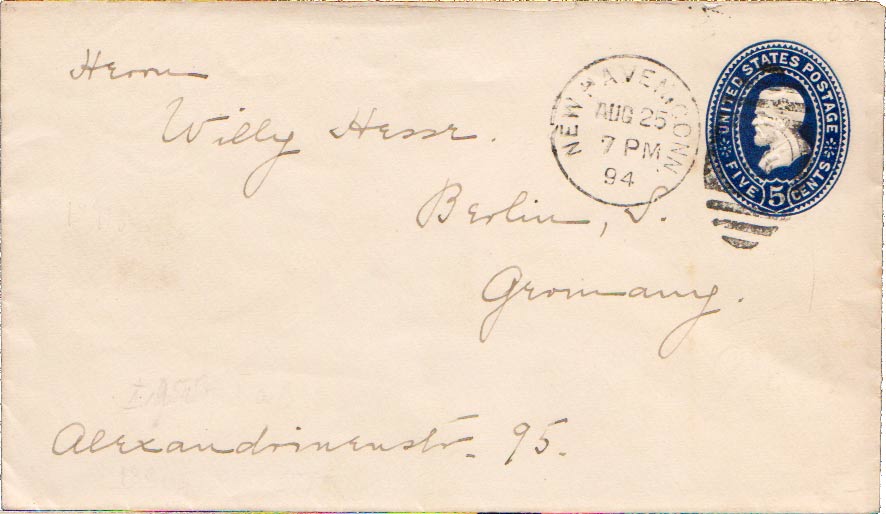 Herrn
Willy Hesse.
Berlin, S.
Germany.
Alexandrinenstr. 95.
NEW HAVEN CONN.
AUG 25
7 PM
94
UNITED STATES POSTAGE
FIVE 5 CENTS